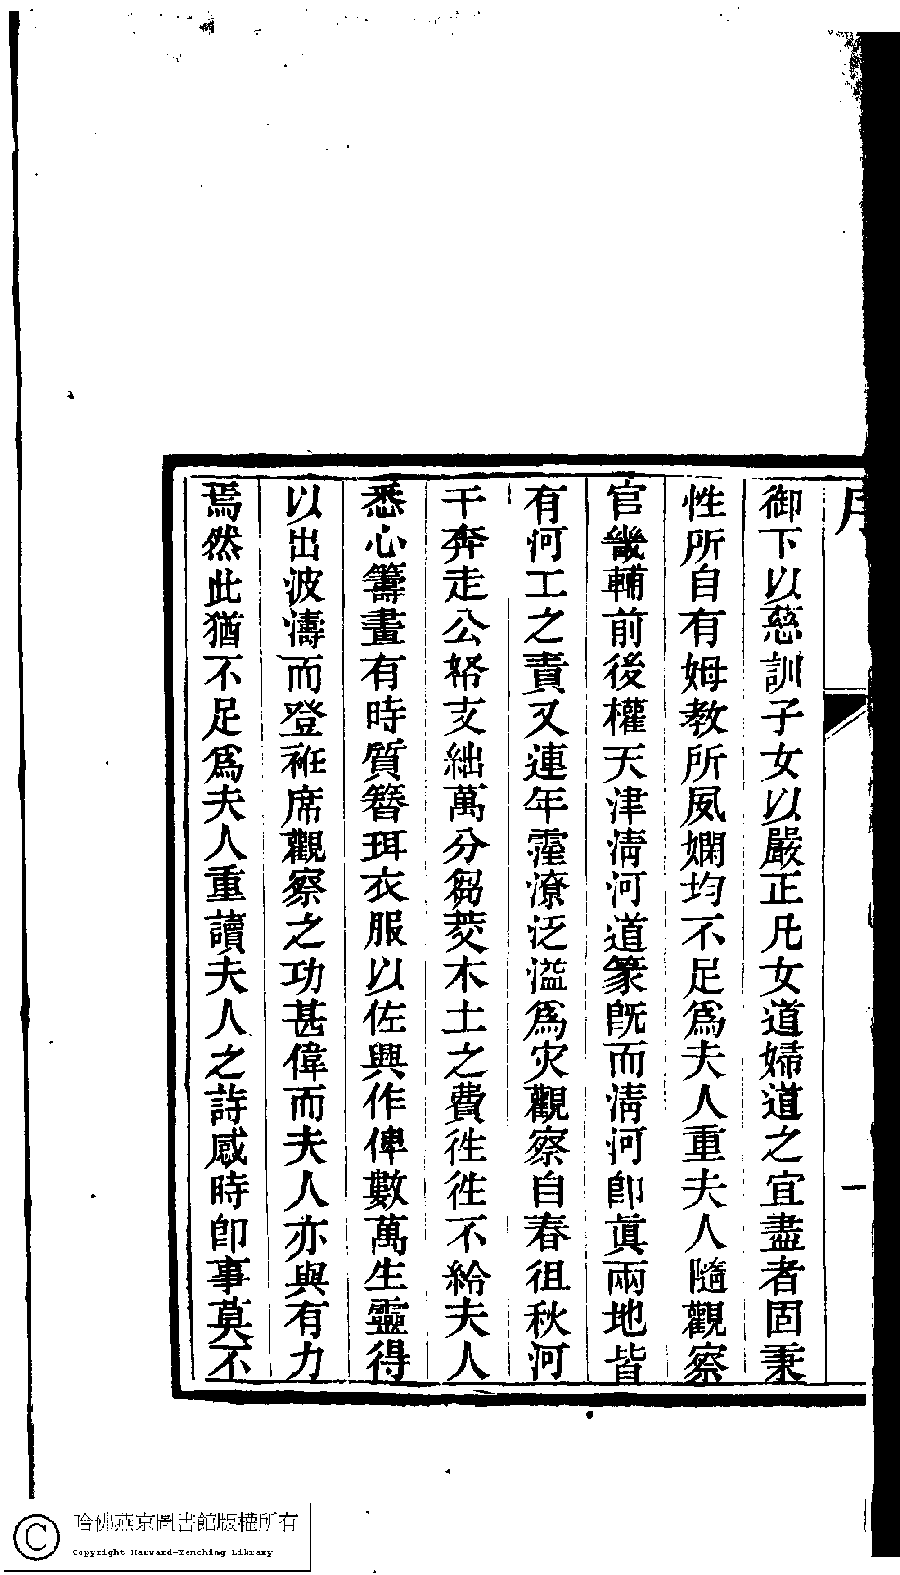 序
一
御下以慈訓子女以嚴正凡女道婦道之宜盡者固秉
性所自有姆教所夙嫻均不足爲夫人重夫人隨觀察
官畿輔前後權天津淸河道篆旣而淸河卽眞兩地皆
有河工之責又連年霪潦泛溢爲灾觀察自春徂秋河
干奔走公帑支絀萬分芻茭木土之費徃徃不給夫人
悉心籌畫有時質簪珥衣服以佐興作俾數萬生靈得
以出波濤而登袵席觀察之功甚偉而夫人亦與有力
焉然此猶不足爲夫人重讀夫人之詩感時卽事莫不
哈佛燕京圖書館版權所有
Copyright Harvard-Yenching Library